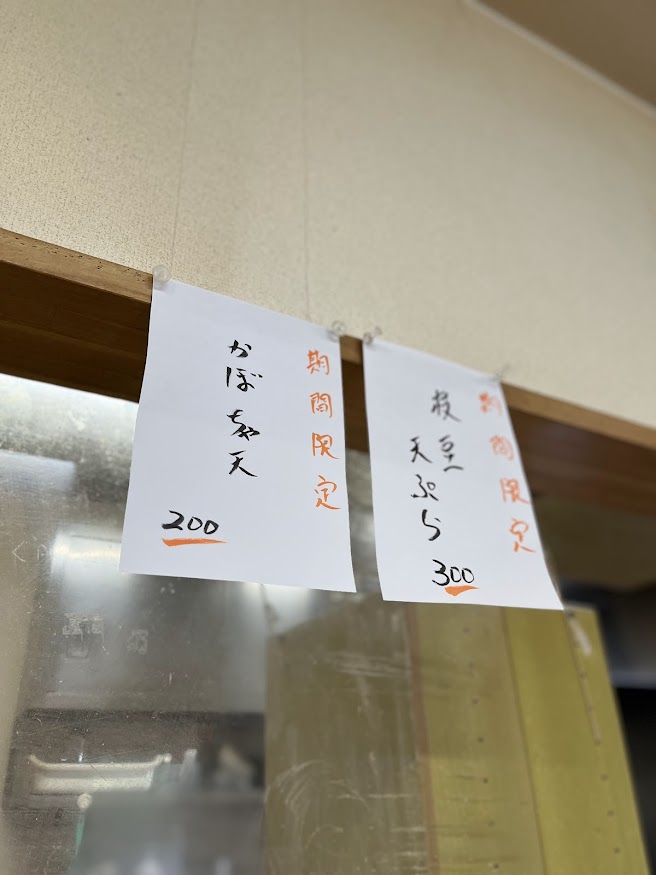 期間限定
かぼちゃ天
200
期間限定
枝豆
天ぷら
300